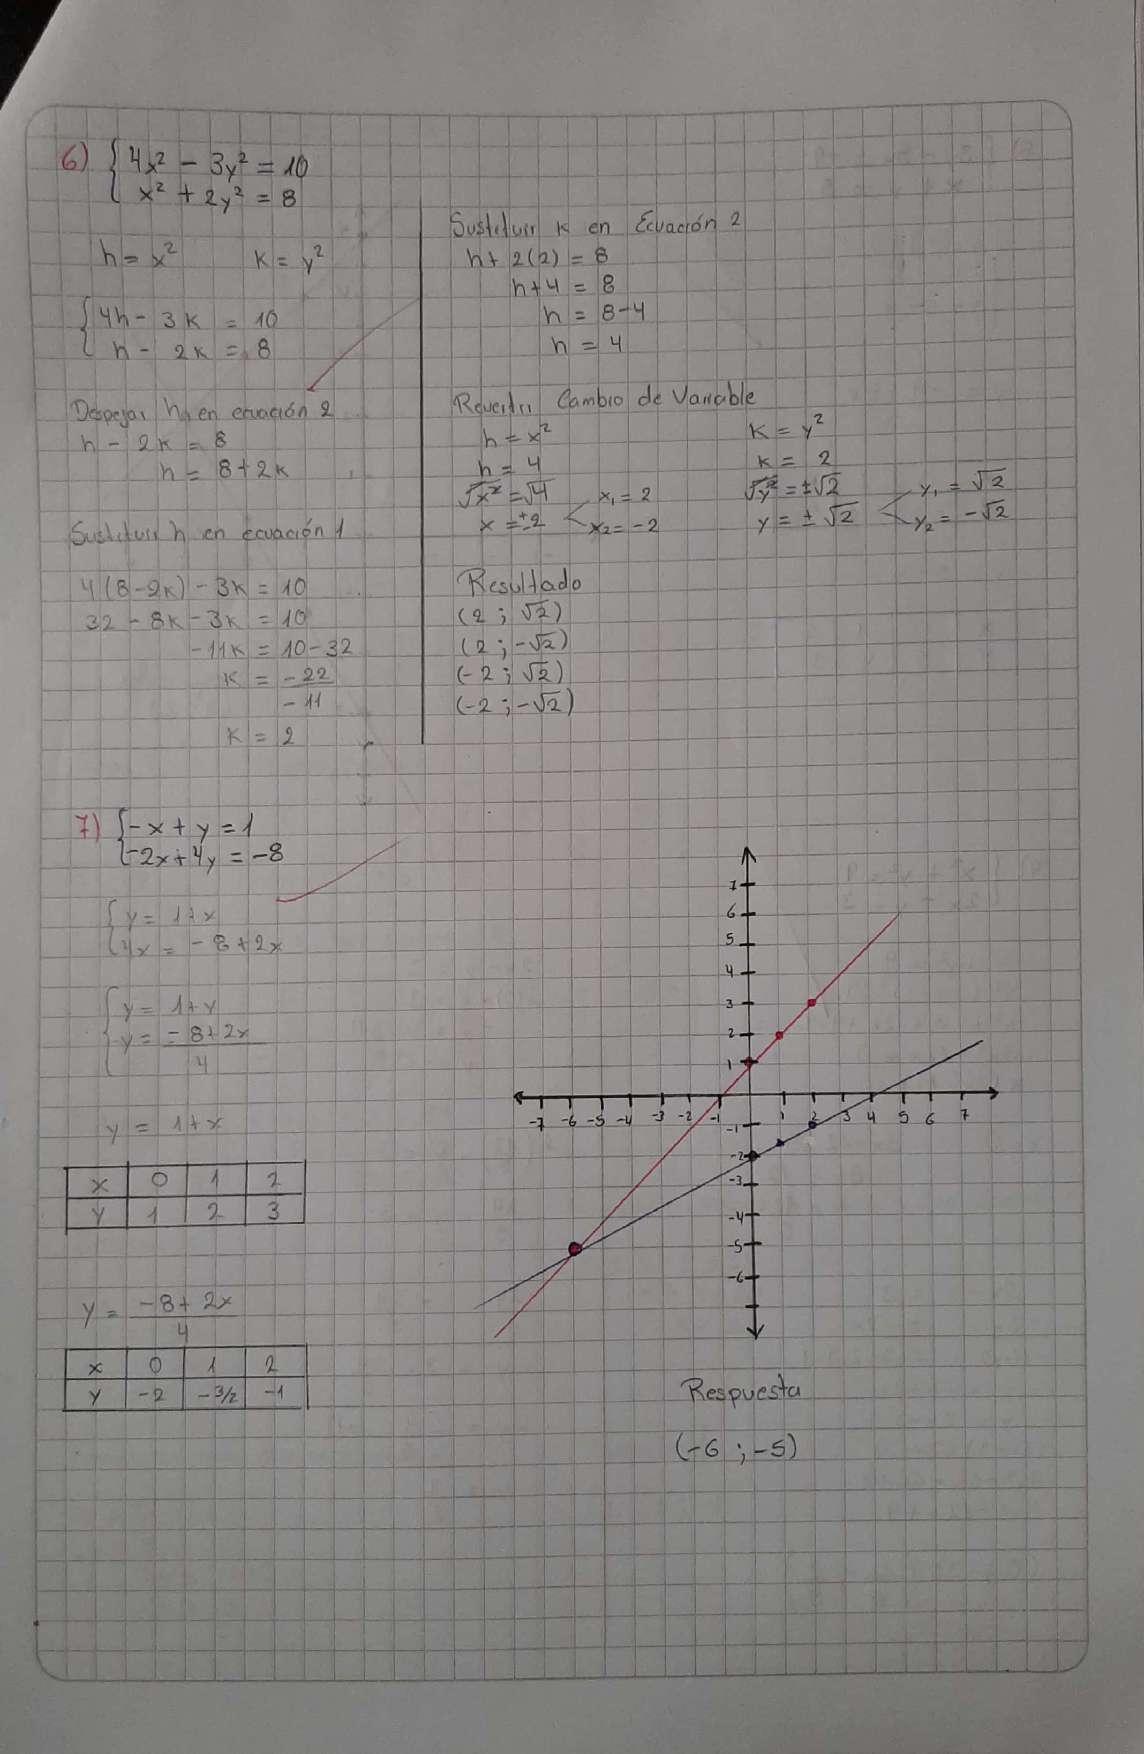 6) { 4x² - 3y² = 10
x² + 2y² = 8
h = x² k = y²
{ 4h - 3k = 10
h - 2k = 8
Despejar h en ecuación 2
h - 2k = 8
h = 8 + 2k
Sustituir h en ecuación 1
4(8 - 2k) - 3k = 10
32 - 8k - 3k = 10
- 11k = 10 - 32
k = -22 / -11
k = 2
Sustituir k en Ecuación 2
h + 2(2) = 8
h + 4 = 8
h = 8 - 4
h = 4
Revertir Cambio de Variable
h = x² k = y²
h = 4 k = 2
√x² = √4 x₁ = 2 √y² = ±√2 y₁ = √2
x = ±2 x₂ = -2 y = ±√2 y₂ = -√2
Resultado
(2 ; √2)
(2 ; -√2)
(-2 ; √2)
(-2 ; -√2)
7) { -x + y = 1
-2x + 4y = -8
{ y = 1 + x
4x = -8 + 2x
{ y = 1 + x
y = -8 + 2x / 4
y = 1 + x
x 0 1 2
y 1 2 3
y = -8 + 2x / 4
x 0 1 2
y -2 -3/2 -1
7
6
5
4
3
2
1
-7 -6 -5 -4 -3 -2 -1 1 2 3 4 5 6 7
-1
-2
-3
-4
-5
-6
Respuesta
(-6 ; -5)